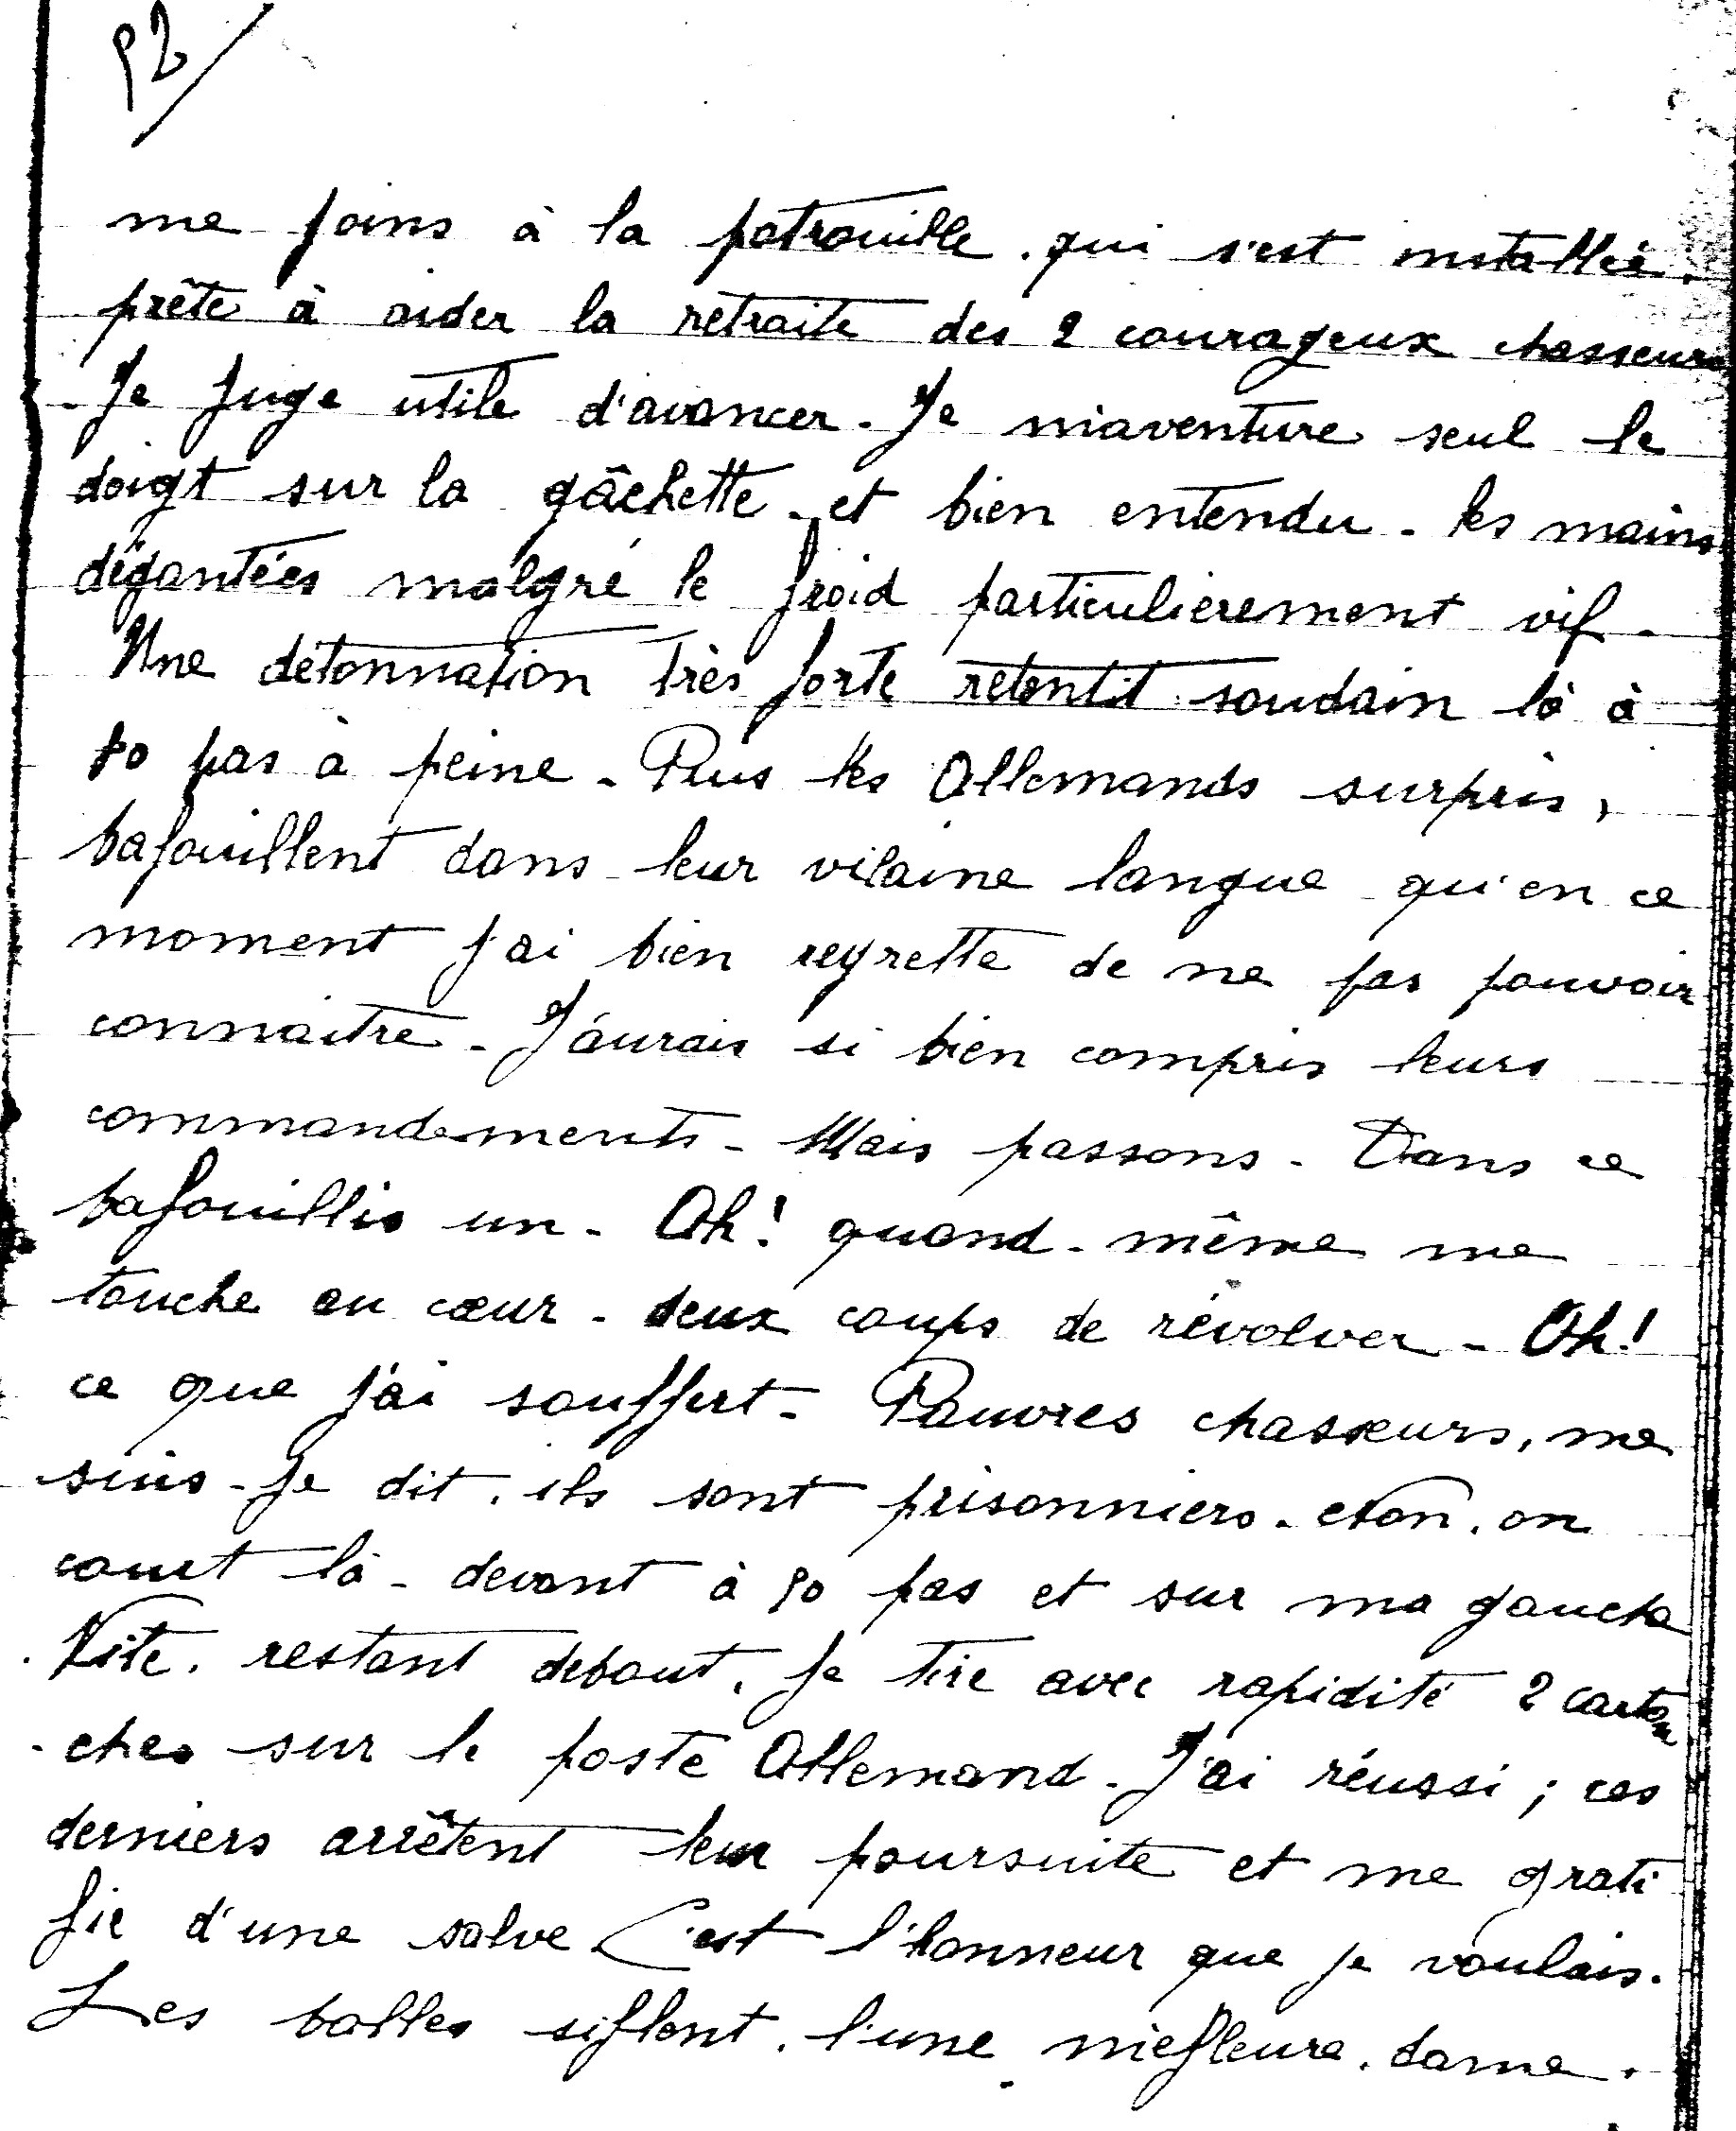 92/
me joins à la patrouille. qui s'est installée.
prête à aider la retraite des 2 courageux chasseurs
. Je juge utile d'avancer. Je m'aventure seul le
doigt sur la gâchette. et bien entendu. les mains
dégantées malgré le froid particulierement vif.
Une détonnation très forte retentit soudain là à
50 pas à peine. Puis les Allemands surpris,
bafouillent dans leur vilaine langue qu'en ce
moment j'ai bien regretté de ne pas pouvoir
connaitre. J'aurais si bien compris leurs
commandements. Mais passons. Dans ce
bafouillis un. Oh! quand-même me
touche au cœur. deux coups de révolver. Oh!
ce que j'ai souffert. Pauvres chasseurs, me
suis-je dit. ils sont prisonniers. Non. on
court là-devant à 50 pas et sur ma gauche
. Vite. restant debout. je tire avec rapidité 2 cartou
-ches sur le poste Allemand. J'ai réussi ; ces
derniers arrêtent leur poursuite et me grati
fie d'une salve C'est l'honneur que je voulais.
Les balles siflent. l'une m'efleure. dame.